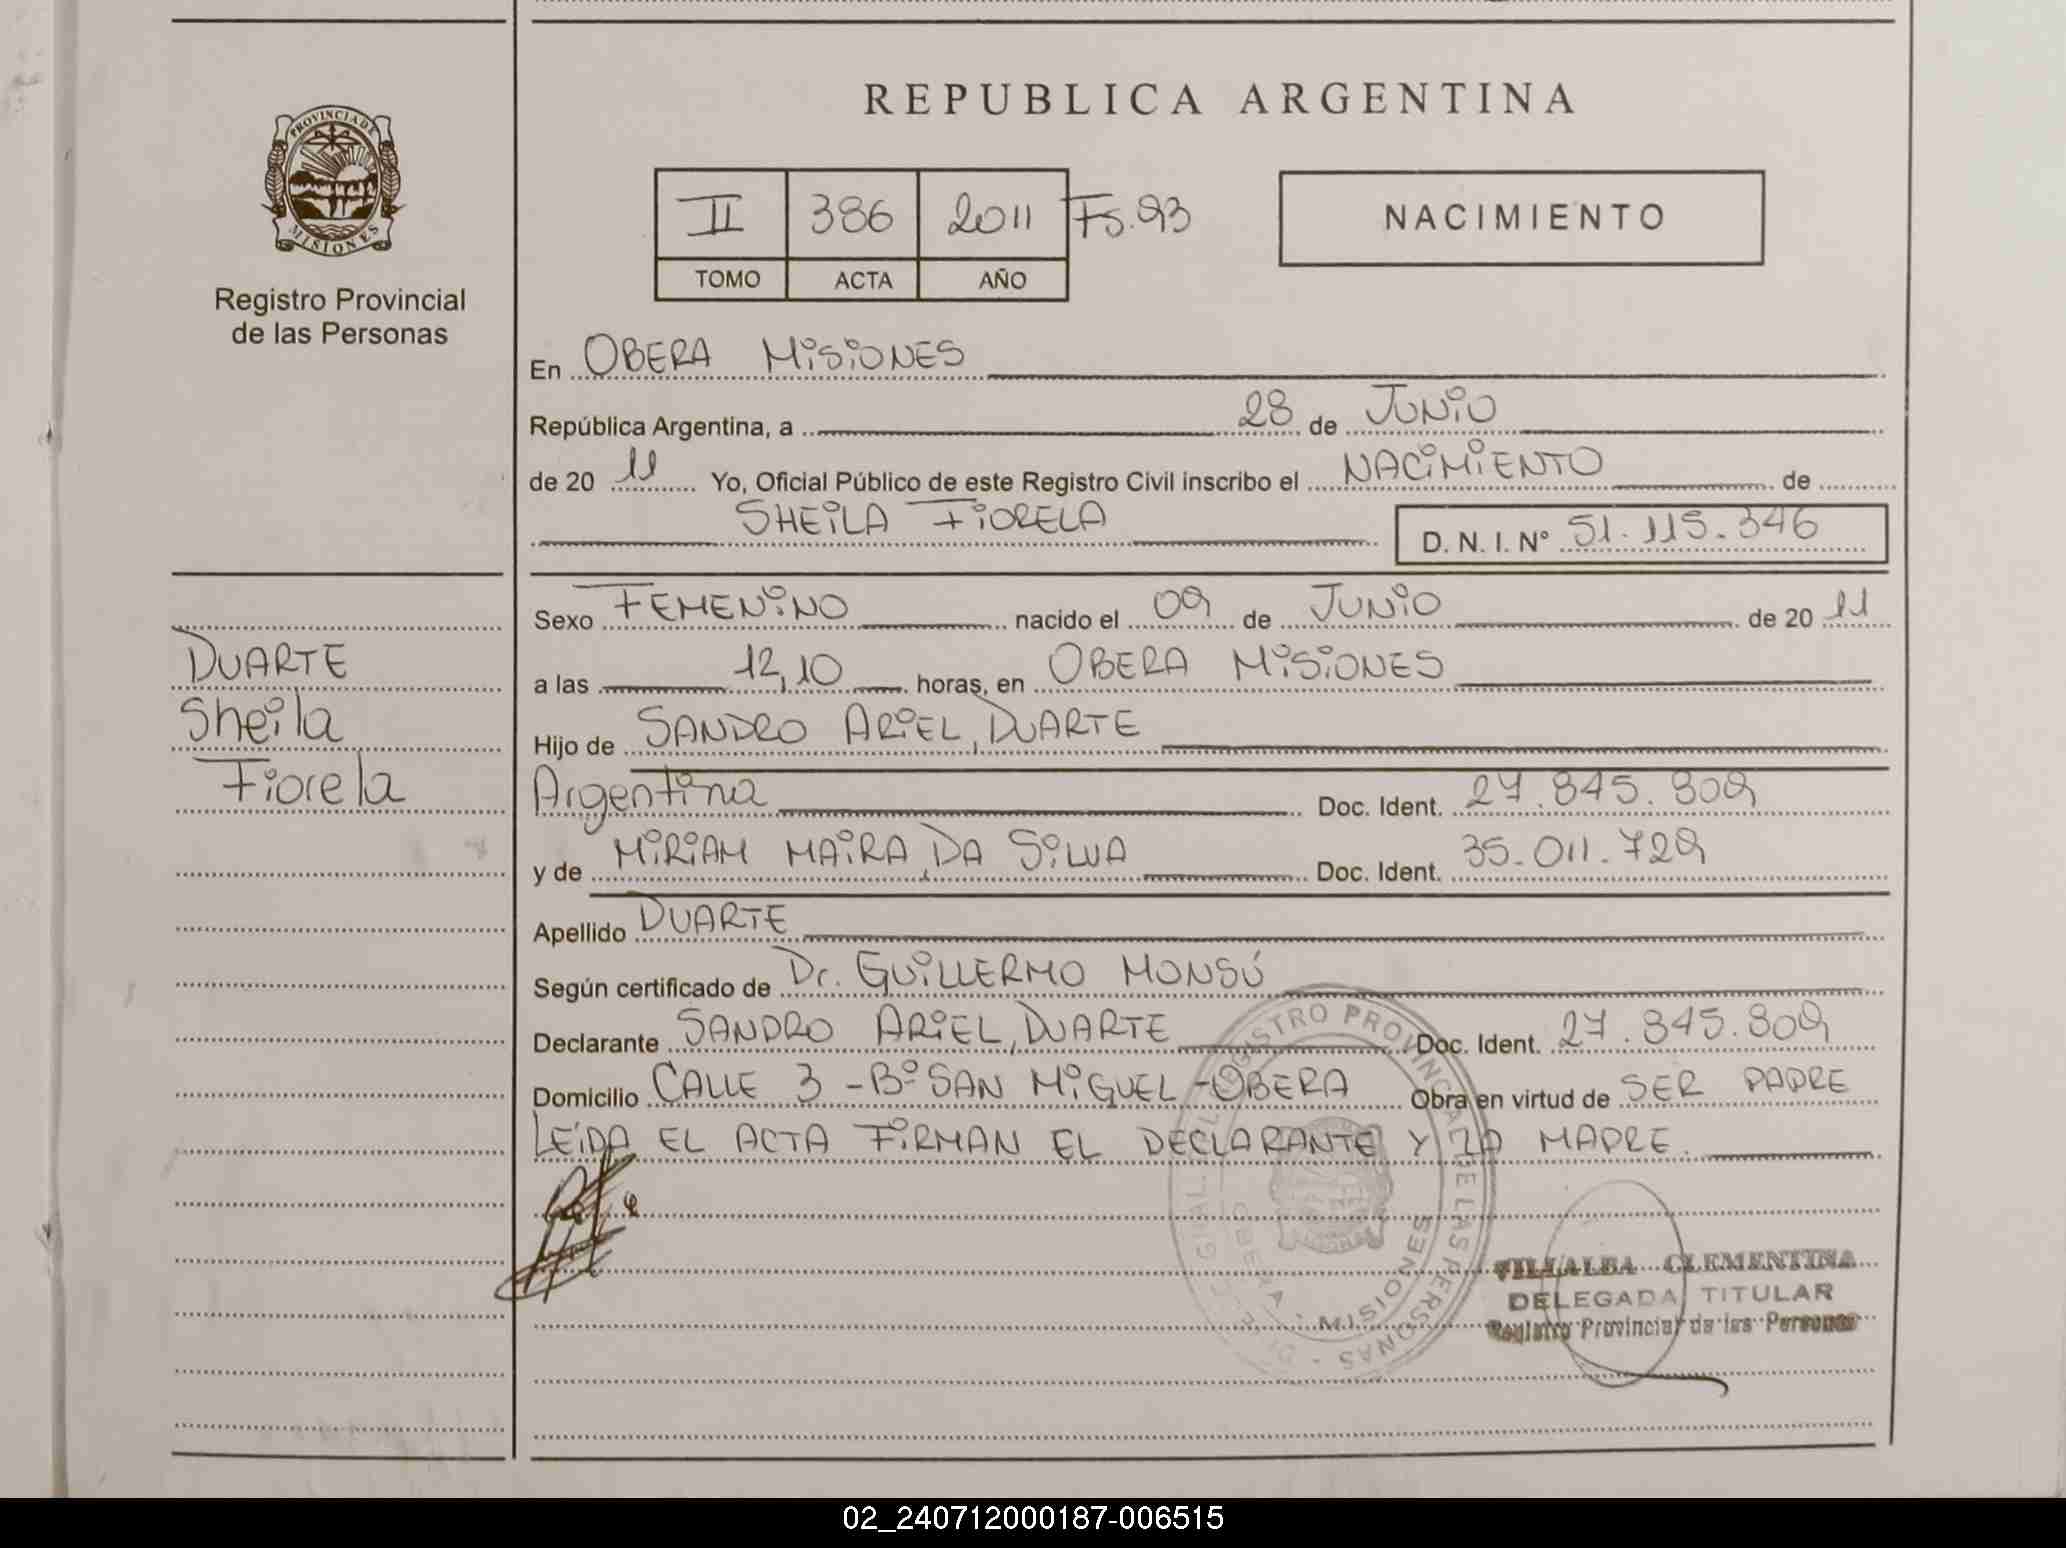 REPUBLICA ARGENTINA
PROVINCIA DE
MISIONES
Registro Provincial
de las Personas
II 386 2011 Fs.93
TOMO ACTA AÑO
NACIMIENTO
En OBERA MISIONES
República Argentina, a 28 de JUNIO
de 20 11 Yo, Oficial Público de este Registro Civil inscribo el NACIMIENTO de
SHEILA FIORELA D. N. I. Nº 51.115.346
DUARTE
Sheila
Fiorela
Sexo FEMENINO nacido el 09 de JUNIO de 20 11
a las 12,10 horas, en OBERA MISIONES
Hijo de SANDRO ARIEL, DUARTE
Argentina Doc. Ident. 27.845.809
y de MIRIAM MAIRA, DA SILVA Doc. Ident. 35.011.729
Apellido DUARTE
Según certificado de Dr. GUILLERMO MONSÚ
Declarante SANDRO ARIEL, DUARTE Doc. Ident. 27.845.809
Domicilio CALLE 3 - Bº SAN MIGUEL - OBERA Obra en virtud de SER PADRE
LEÍDA EL ACTA FIRMAN EL DECLARANTE Y LA MADRE.
REGISTRO PROVINCIAL DE LAS PERSONAS
OBERA - MISIONES
VILLALBA CLEMENTINA
DELEGADA TITULAR
Registro Provincial de las Personas
02_240712000187-006515